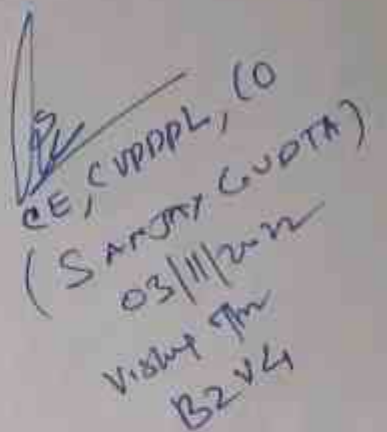 CE, CVPPPL, CO
(SANJAY GUPTA)
03/11/2022
B2V4